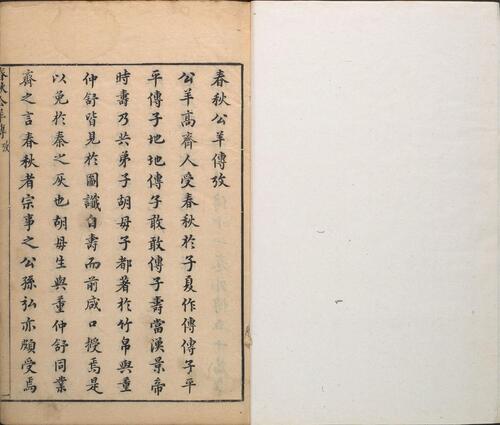 春秋公羊傳攷
公羊高齊人受春秋於子夏作傳傳子平
平傳子地地傳子敢敢傳子壽當漢景帝
時壽乃共弟子胡母子都著於竹帛與董
仲舒皆見於圖讖自壽而前咸口授焉是
以免於秦之灰也胡毋生與董仲舒同業
齊之言春秋者宗事之公孫弘亦頗受焉
春秋公羊傳攷
一